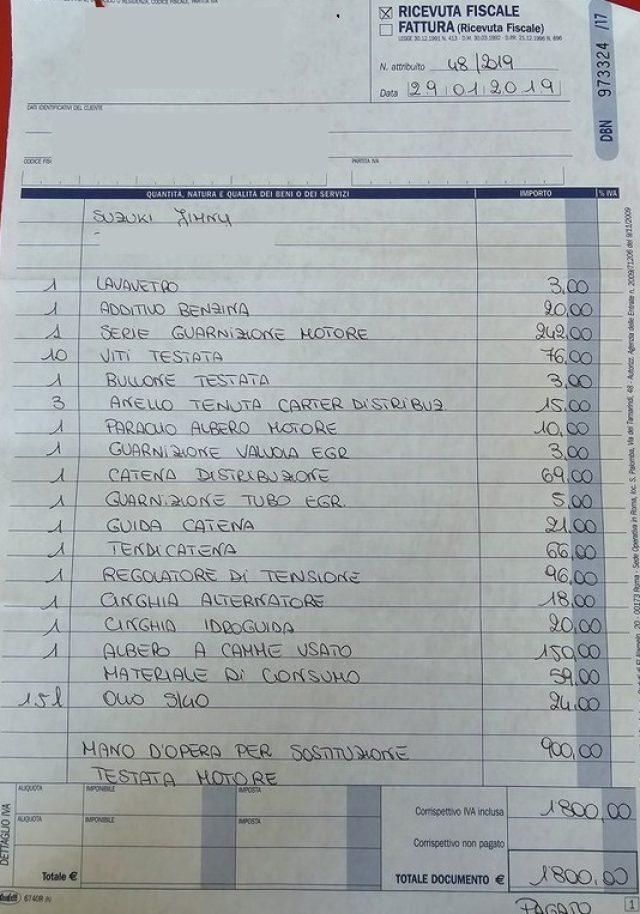 RICEVUTA FISCALE
FATTURA (Ricevuta Fiscale)
LEGGE 30.12.1991 N. 413 - D.M. 30.03.1992 - D.P.R. 21.12.1996 N. 696
N. attribuito 48/2019
Data 29 01 2019
DBN 973324 /17
DATI IDENTIFICATIVI DEL CLIENTE
PARTITA IVA
QUANTITÀ, NATURA E QUALITÀ DEI BENI O DEI SERVIZI IMPORTO % IVA
SUZUKI JIMNY
1 LAVAVETRO 3,00
1 ADDITIVO BENZINA 20,00
1 SERIE GUARNIZIONE MOTORE 242,00
10 VITI TESTATA 76,00
1 BULLONE TESTATA 3,00
3 ANELLO TENUTA CARTER DISTRIBUZ. 15,00
1 PARAOLIO ALBERO MOTORE 10,00
1 GUARNIZIONE VALVOLA EGR 3,00
1 CATENA DISTRIBUZIONE 69,00
1 GUARNIZIONE TUBO EGR. 5,00
1 GUIDA CATENA 21,00
1 TENDICATENA 66,00
1 REGOLATORE DI TENSIONE 96,00
1 CINGHIA ALTERNATORE 18,00
1 CINGHIA IDROGUIDA 20,00
1 ALBERO A CAMME USATO 150,00
MATERIALE DI CONSUMO 59,00
1,5 l OLIO 5/40 24,00
MANO D'OPERA PER SOSTITUZIONE 900,00
TESTATA MOTORE
DETTAGLIO IVA
ALIQUOTA IMPONIBILE IMPOSTA
Corrispettivo IVA inclusa 1800,00
ALIQUOTA IMPONIBILE IMPOSTA
Corrispettivo non pagato
Totale € TOTALE DOCUMENTO € 1800,00
6740R
PAGATO
1